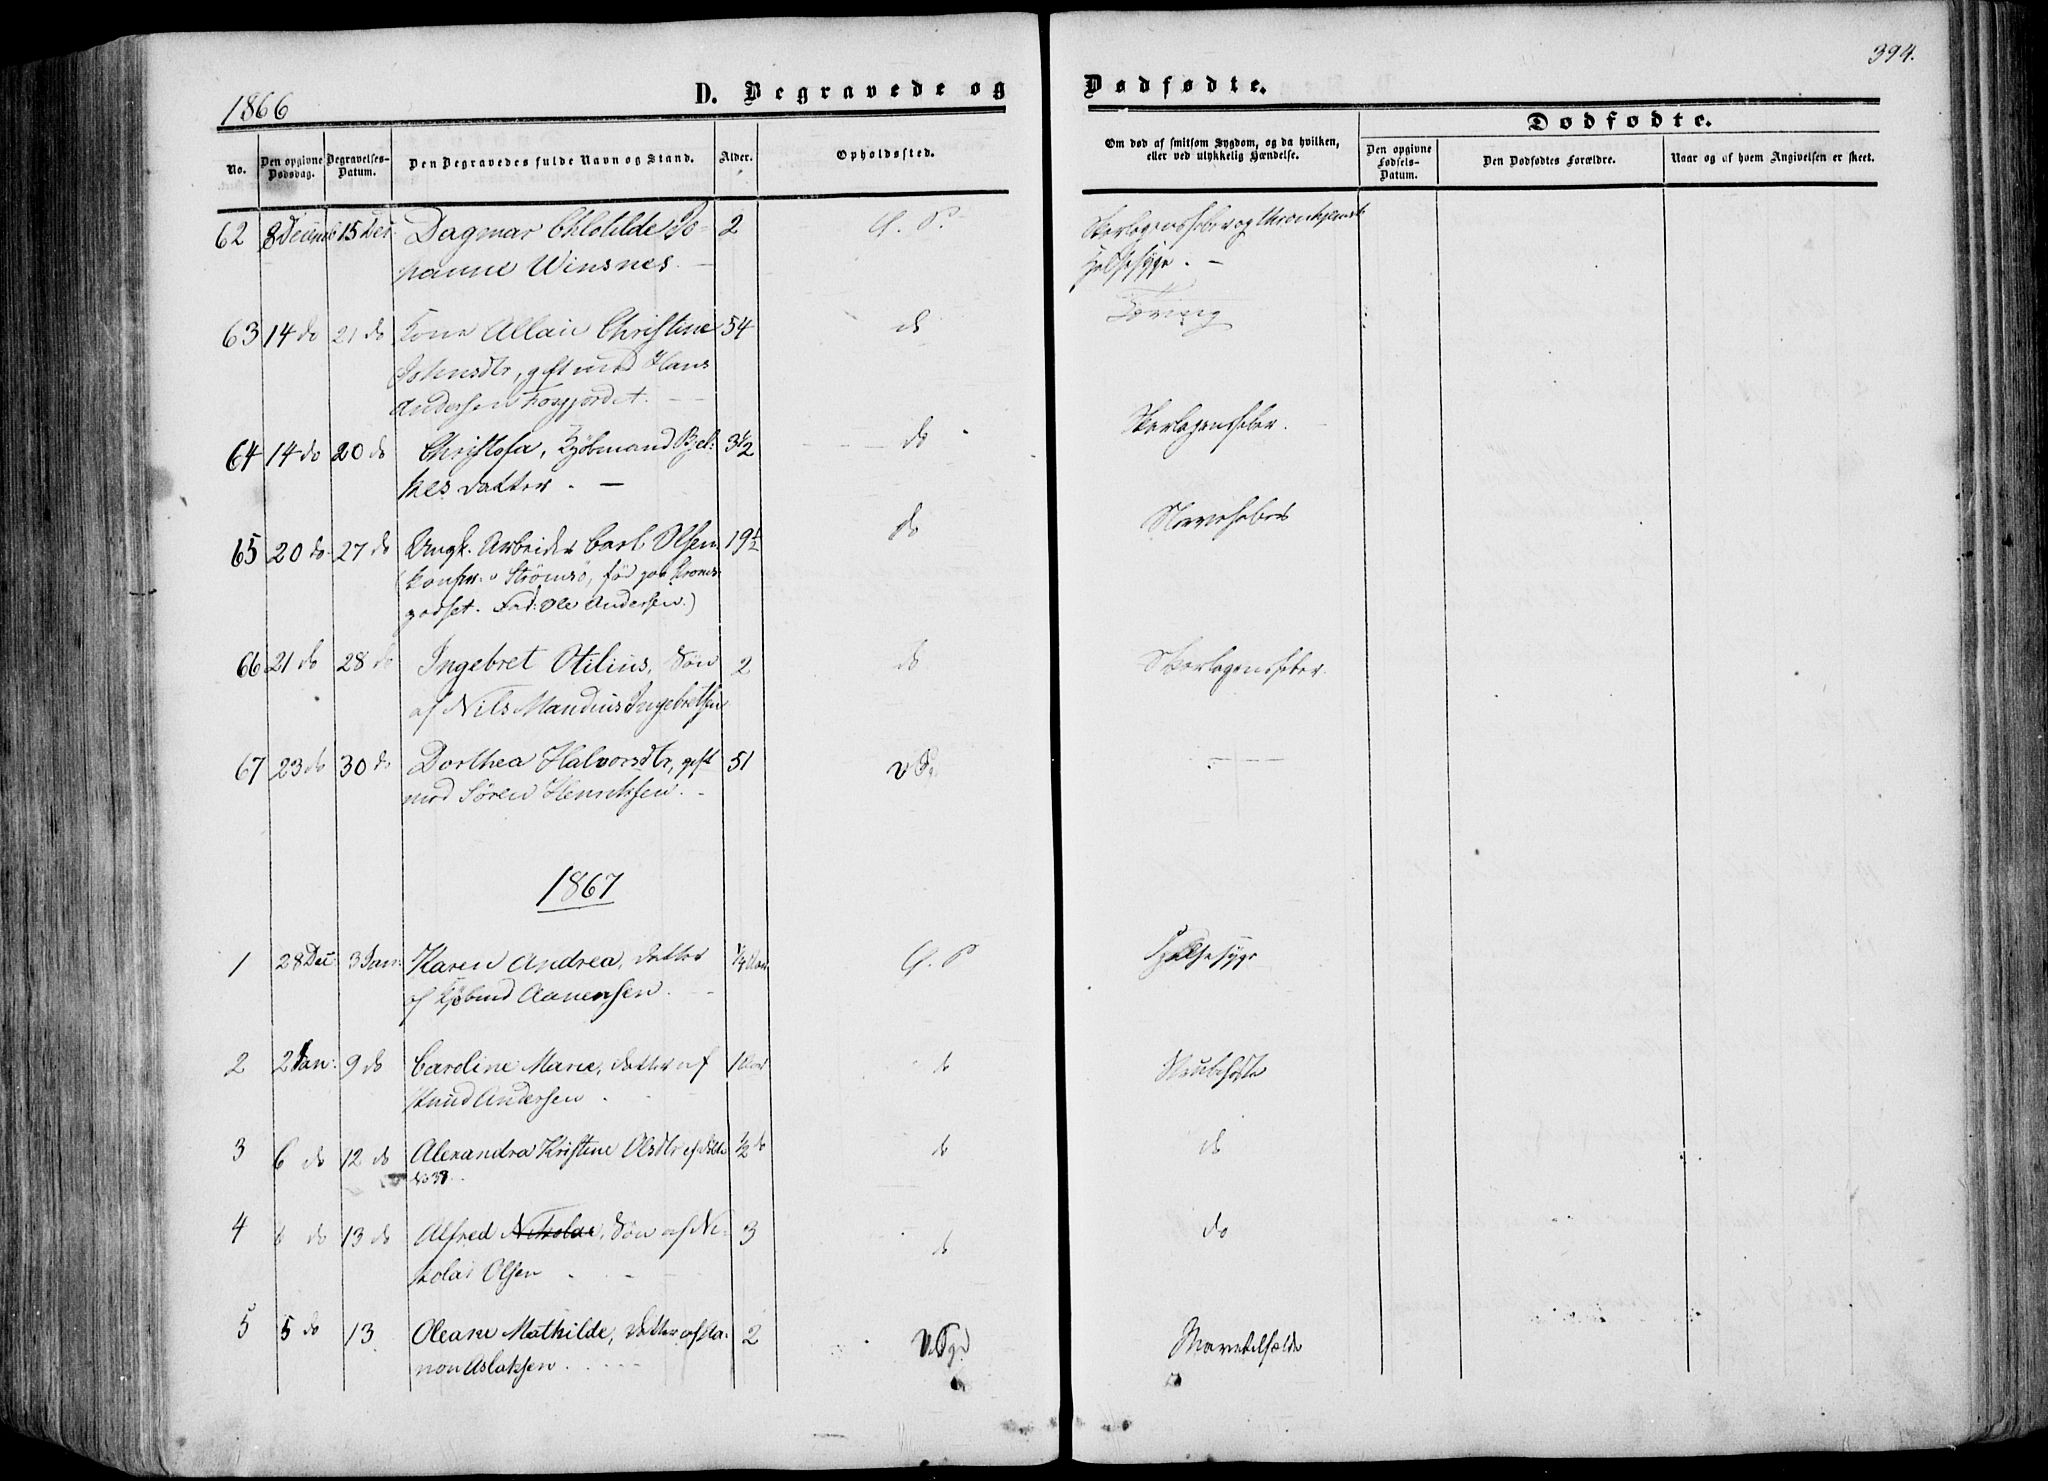 394.
1866
D. Begravede og Dødfødte.
Dødfødte.
No.
Den opgivne Dødsdag.
Begravelses-Datum.
Den Begravedes fulde Navn og Stand.
Alder.
Opholdssted.
Om død af smitsom Sygdom, og da hvilken, eller ved ulykkelig Hændelse.
Den opgivne Fødsels-Datum.
Den Dødfødtes Forældre.
Naar og af hvem Angivelsen er skeet.
62 8 Decembr 15 Der Dagmar Chlotilde Jo- 2 G. P. Skarlagensfeber og
hanne Winsnes. Halssyge.
63 14 do 21 do Kone Christine 54 do Tæring
gift med Hans
Andersen
64 14 do 20 do Kjøbmand Bjel- 3 1/2 do Skarlagensfeber.
kes Datter.
65 20 do 27 do Ungk. Arbeider Carl Olsen 19 1/2 do Nervefeber
Strømsø, fød paa Strøms-
godset. Fad: Ole Andersen.)
66 21 do 28 do Ingebret Otilius, Søn 2 do Skarlagensfeber.
af Nils Mandius Ingebretsen
67 23 do 30 do Dorthea Halvorsdtr, gift 51
med Søren Henriksen.
1867
1 28 Dec 3 Jan: Karen Andrea, Datter 1/4 Aar G. P Halssyge
af Kjøbmd Aanensen.
2 2 Jan: 9 do Caroline Marie, Datter af 1 Aar do Strubehoste
Knud Andersen
3 6 do 12 do Alexandra Kristine Olsdtr 1/2 do do do
4 6 do 13 do Alfred Nikolai, Søn af Ni- 3 do do
kolai Olsen
5 5 do 13 Oleane Mathilde, Datter af Aa- 2
non Aslaksen.